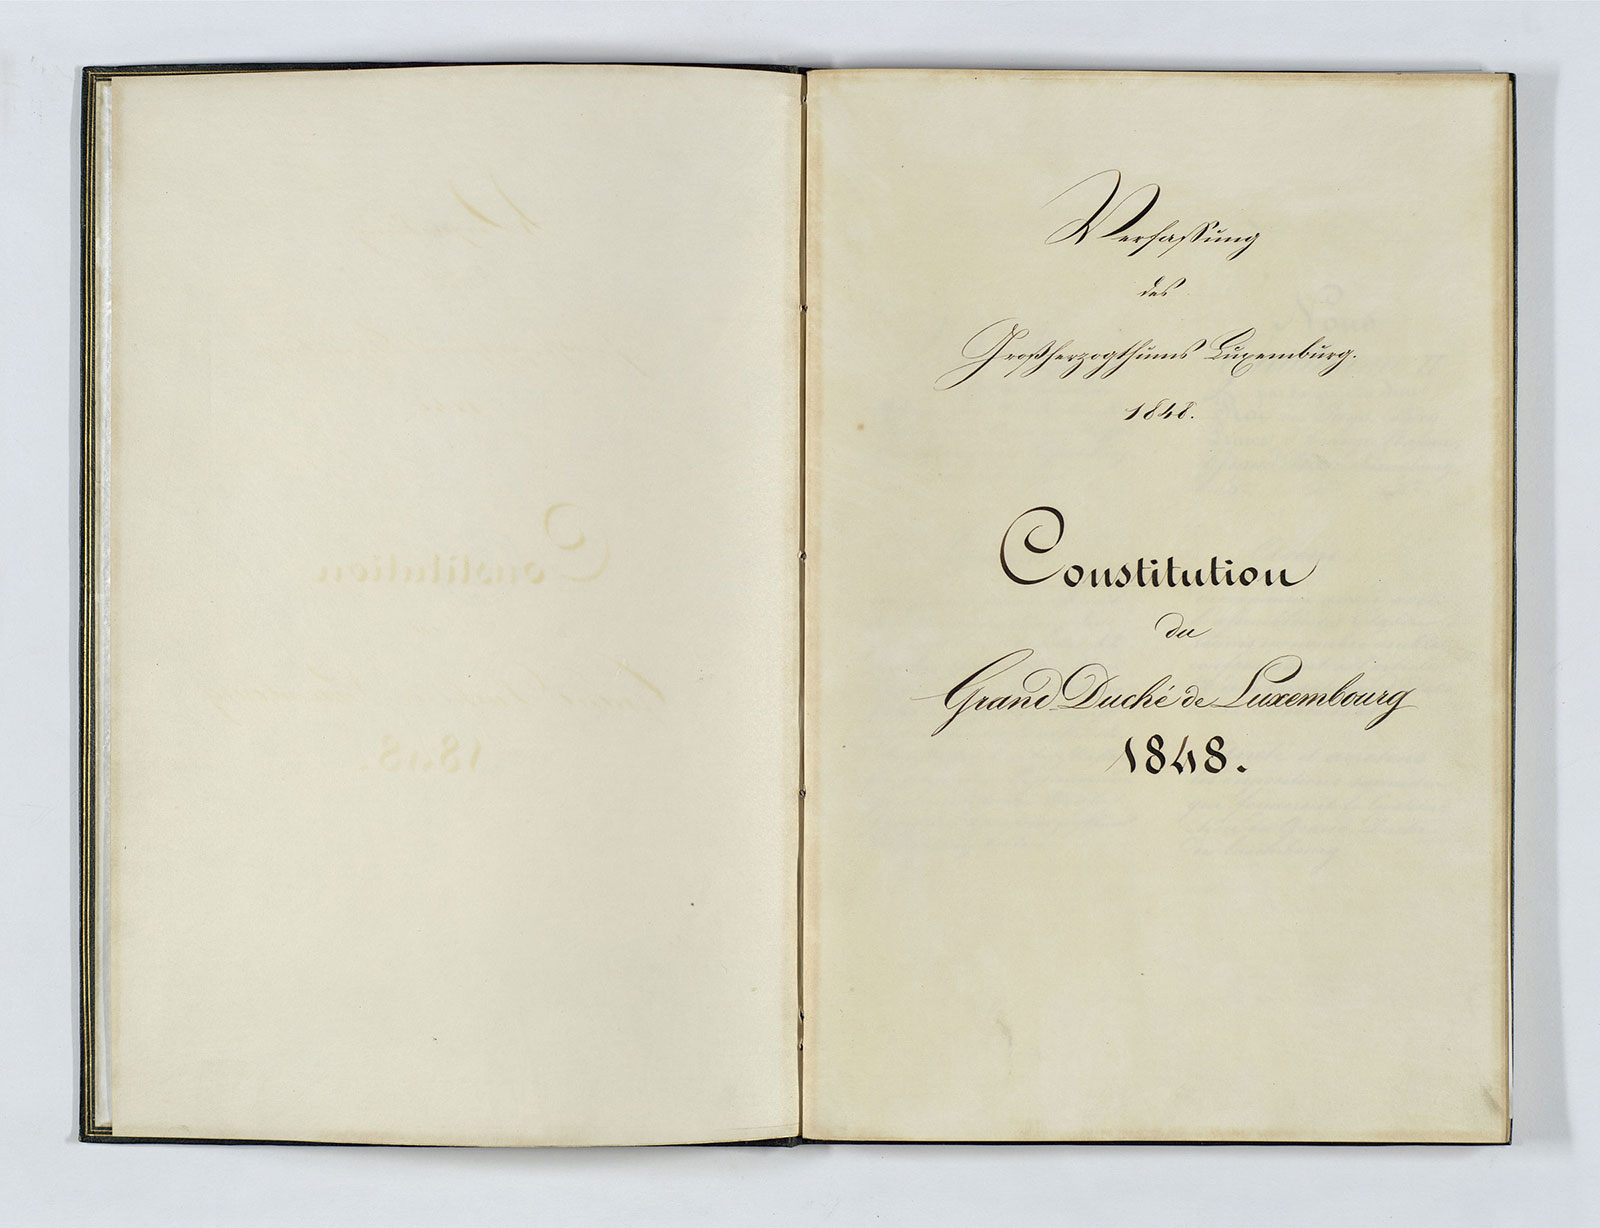 Verfassung
des
Großherzogthums Luxemburg.
1848.
Constitution
du
Grand Duché de Luxembourg
1848.